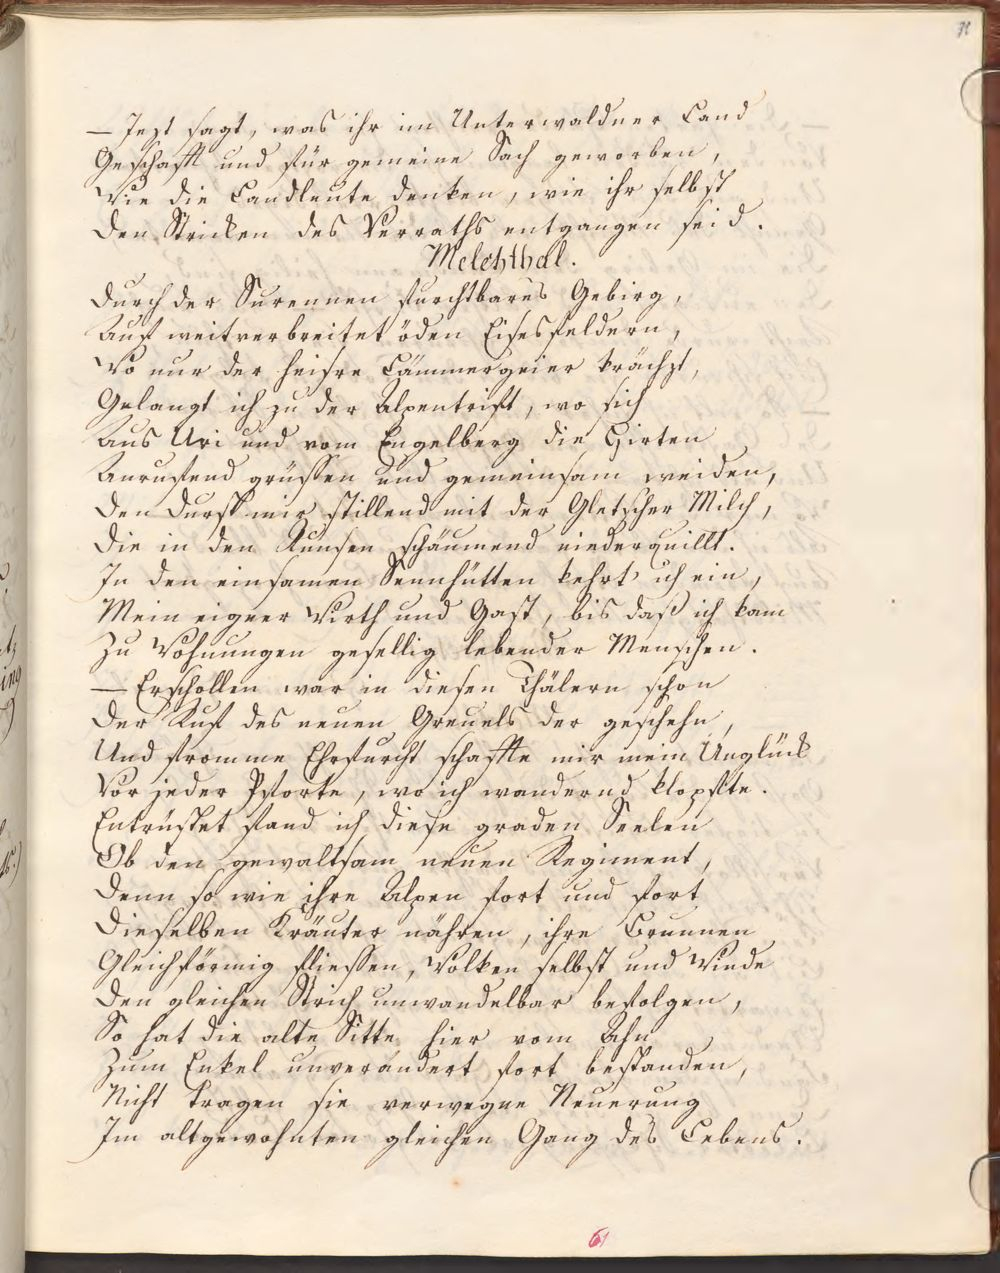 71
— Jezt sagt, was ihr im Unterwaldner Land
Geschafft und für gemeine Sach geworben,
Wie die Landleute denken, wie ihr selbst
Den Stricken des Verraths entgangen seid.
Melchthal.
Durch der Surennen furchtbares Gebirg,
Auf weitverbreitet öden Eisesfeldern,
Wo nur der heisre Lämmergeier krächzt,
Gelangt ich zu der Alpentrift, wo sich
Aus Uri und vom Engelberg die Hirten
Anrufend grüssen und gemeinsam weiden,
Den Durst mir stillend mit der Gletscher Milch,
Die in den Runsen schäumend niederquillt.
In den einsamen Sennhütten kehrt' ich ein,
Mein eigner Wirth und Gast, bis daß ich kam
Zu Wohnungen gesellig lebender Menschen.
— Erschollen war in diesen Thälern schon
Der Ruf des neuen Greuels der geschehn,
Und fromme Ehrfurcht schaffte mir mein Unglück
Vor jeder Pforte, wo ich wandernd klopfte.
Entrüstet fand ich diese graden Seelen
Ob den gewaltsam neuen Regiment,
Denn so wie ihre Alpen fort und fort
Dieselben Kräuter nähren, ihre Brunnen
Gleichförmig fliessen, Wolken selbst und Winde
Den gleichen Strich unwandelbar befolgen,
So hat die alte Sitte hier vom Ahn
Zum Enkel unverändert fort bestanden,
Nicht tragen sie verwegne Neuerung
Im altgewohnten gleichen Gang des Lebens.
61